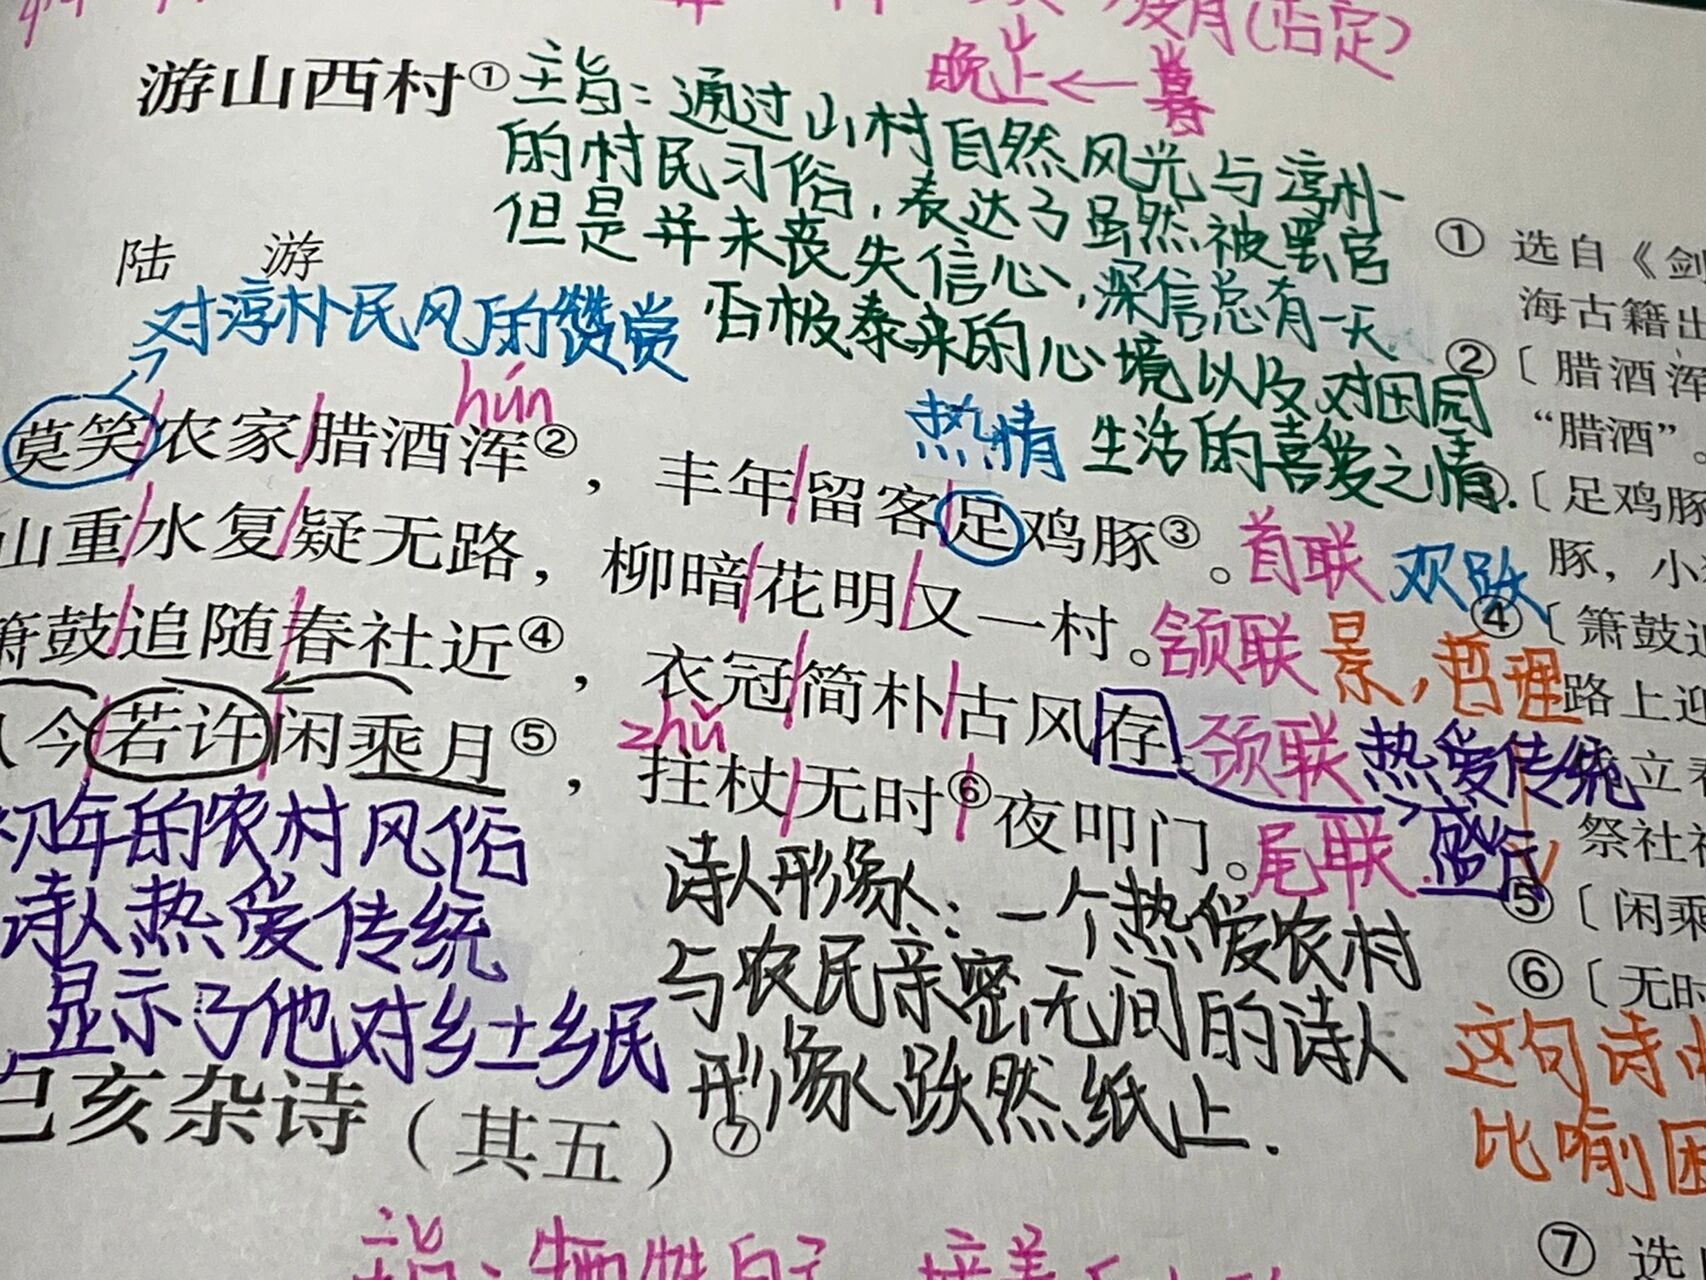 月(否定)
晚上←暮
游山西村①
主旨:通过山村自然风光与淳朴
的村民习俗,表达了虽然被罢官
但是并未丧失信心,深信总有一天
否极泰来的心境以及对田园
生活的喜爱之情.
陆 游
对淳朴民风的赞赏
hún
热情
莫笑/农家/腊酒浑②,丰年/留客/足鸡豚③。首联 欢跃
山重/水复/疑无路,柳暗/花明/又一村。颔联 景,哲理
箫鼓/追随/春社近④,衣冠/简朴/古风存 颈联 热爱传统
盛行
zhǔ
今/若许/闲乘月⑤,拄杖/无时⑥/夜叩门。尾联
初年的农村风俗
诗人热爱传统
显示了他对乡土乡民
诗人形象:一个热爱农村
与农民亲密无间的诗人
形象跃然纸上.
己亥杂诗(其五)⑦
主旨:牺牲自己
① 选自《剑
海古籍出
② 〔腊酒浑
“腊酒”。
〔足鸡豚
豚,小
④〔箫鼓追
路上迎
立春
祭社社
⑤〔闲乘
⑥〔无时
这句诗
比喻困
⑦ 选